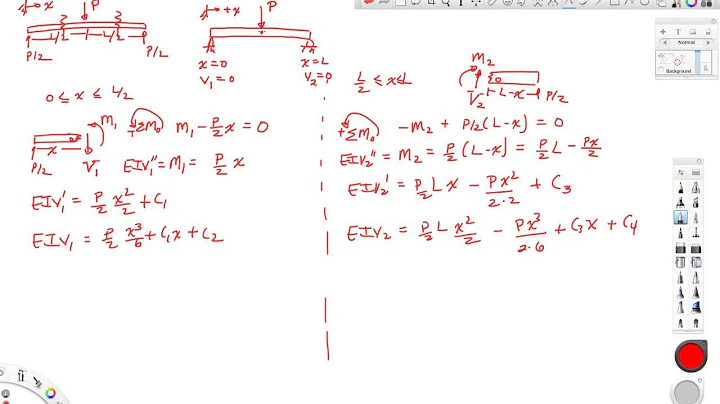 +x P
L/2 L/2
P/2 P/2
+x P
x=0 x=L
v₁=0 v₂=0
0 ≤ x ≤ L/2
M₁
x
P/2 V₁
+ΣM₀ M₁ - P/2 x = 0
EIV₁'' = M₁ = P/2 x
EIV₁' = P/2 x²/2 + C₁
EIV₁ = P/2 x³/6 + C₁x + C₂
L/2 ≤ x ≤ L
M₂
V₂ L-x P/2
+ΣM₀ -M₂ + P/2(L-x) = 0
EIV₂'' = M₂ = P/2(L-x) = P/2 L - Px/2
EIV₂' = P/2 Lx - Px²/2·2 + C₃
EIV₂ = P/2 L x²/2 - Px³/2·6 + C₃x + C₄
Normal
Background